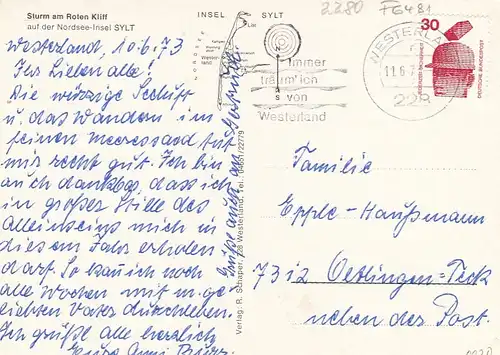 Sturm am Roten Kliff
auf der Nordsee-Insel SYLT
Westerland, 10.6.73
Ihr Lieben alle!
Die würzige Seeluft
u. das Wandern im
feinen Meeressand tut
mir recht gut. Ich bin
auch dankbar, dass ich
in großer Stille des
Alleinseins mich in
diesem Jahr erholen
darf. So kann ich noch
alle Wochen mit
liebsten Vater durchleben.
Ich grüße alle herzlich
Eure Anni
Grüße auch an
Verlag: R. Schaper, 228 Westerland, Tel.: 04651/22779
INSEL SYLT
LIST
Westerland
N
S
Immer
träum' ich
von
Westerland
WESTERLAND
11.6.7
228
2280
FG481
30
DEUTSCHE BUNDESPOST
Familie
Epple-Haußmann
7312 Oetlingen-Teck
neben der Post.